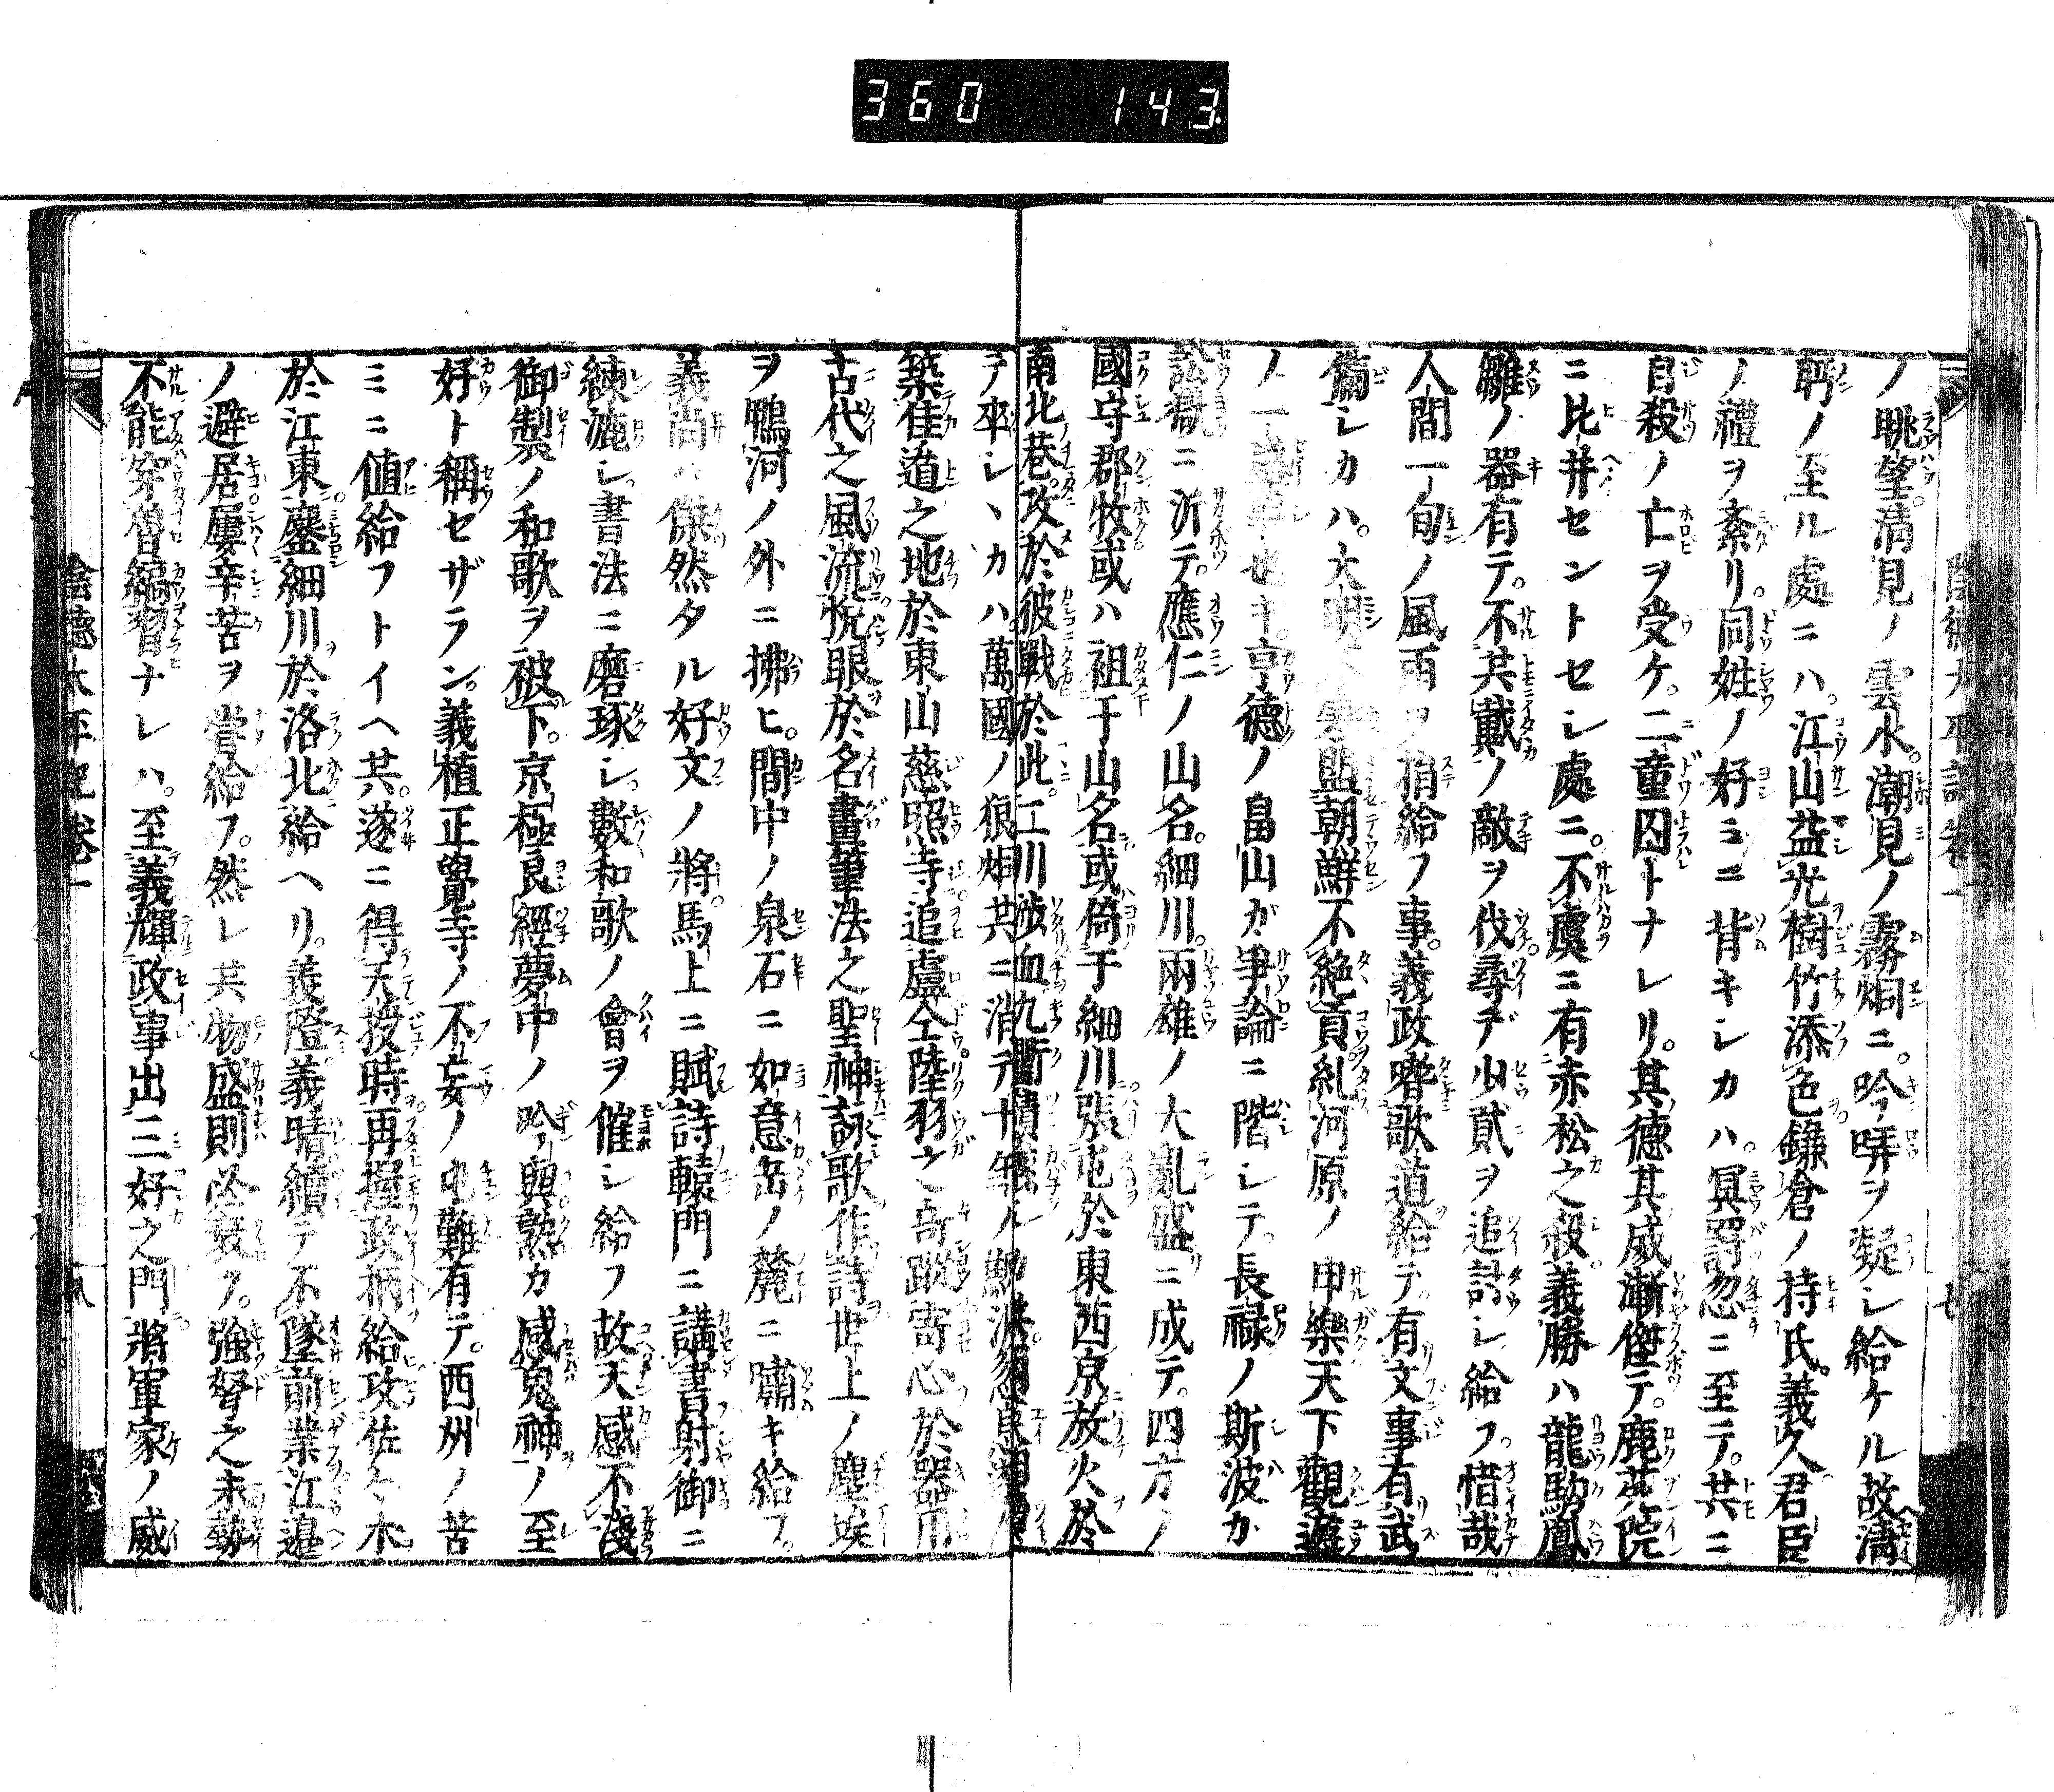 360 143
ノ眺望清見ノ雲水。潮見ノ霧烟ニ。吟哢ヲ凝レ給ケル故溝
眄ノ至ル處ニハ。江山益光樹竹添色鎌倉ノ持氏。義久君臣
ノ禮ヲ紊リ。同姓ノ好ミニ背キレカハ。冥罸忽ニ至テ。共ニ
自殺ノ亡ヲ受ケ。二童囚トナレリ。其德其威漸傑テ。鹿苑院
ニ比并セントセレ處ニ。不虞ニ有赤松之殺。義勝ハ龍駒鳳
雛ノ器有テ。不共戴ノ敵ヲ伐尋デ少貳ヲ追討レ給フ。惜哉
人間一旬ノ風雨ヲ捐給フ事。義政嗜歌道給テ。有文事有武
備レカハ。大明 朝鮮不絶貢糺河原ノ申樂天下觀遊
ノ一 也キ。亨德ノ畠山ガ爭論ニ階レテ。長禄ノ斯波カ
訟獄ニ泝テ。應仁ノ山名。細川。兩雄ノ大亂盛ニ成テ。四方ノ
國守郡牧或ハ袒于山名或倚于細川張屯於東西京放火於
南北巷。攻於彼戰於此。工川渉血九衢積 ル
ヲ卒レヽカハ萬國ノ狼烟共ニ消テ
築佳遒之地於東山慈照寺追盧仝陸羽之奇蹤寄心於器用
古代之風流悦眼於名畫筆法之聖神詠歌作詩世上ノ塵埃
ヲ鴨河ノ外ニ拂ヒ。間中ノ泉石ニ如意缶ノ麓ニ嘯キ給フ。
義尚ハ傑然タル好文ノ將。馬上ニ賦詩轅門ニ講書射御ニ
練漉レ書法ニ磨琢レ。數和歌ノ會ヲ催レ給フ故天感不淺
御製ノ和歌ヲ被下。京極良經夢中ノ吟興熟カ感鬼神ノ至
好ト稱セザラン。義植正覺寺ノ不妄ノ屯難有テ。西州ノ苦
ミニ値給フトイヘ共。遂ニ得天授時再握政柄給攻佐々木
於江東。鏖細川於洛北給ヘリ。義澄義晴續テ不墜前業江邉
ノ避居屢辛苦ヲ嘗給フ。然レ共物盛則必衰フ。強弩之末勢
不能穿魯縞習ナレハ。至義輝政事出三好之門將軍家ノ威